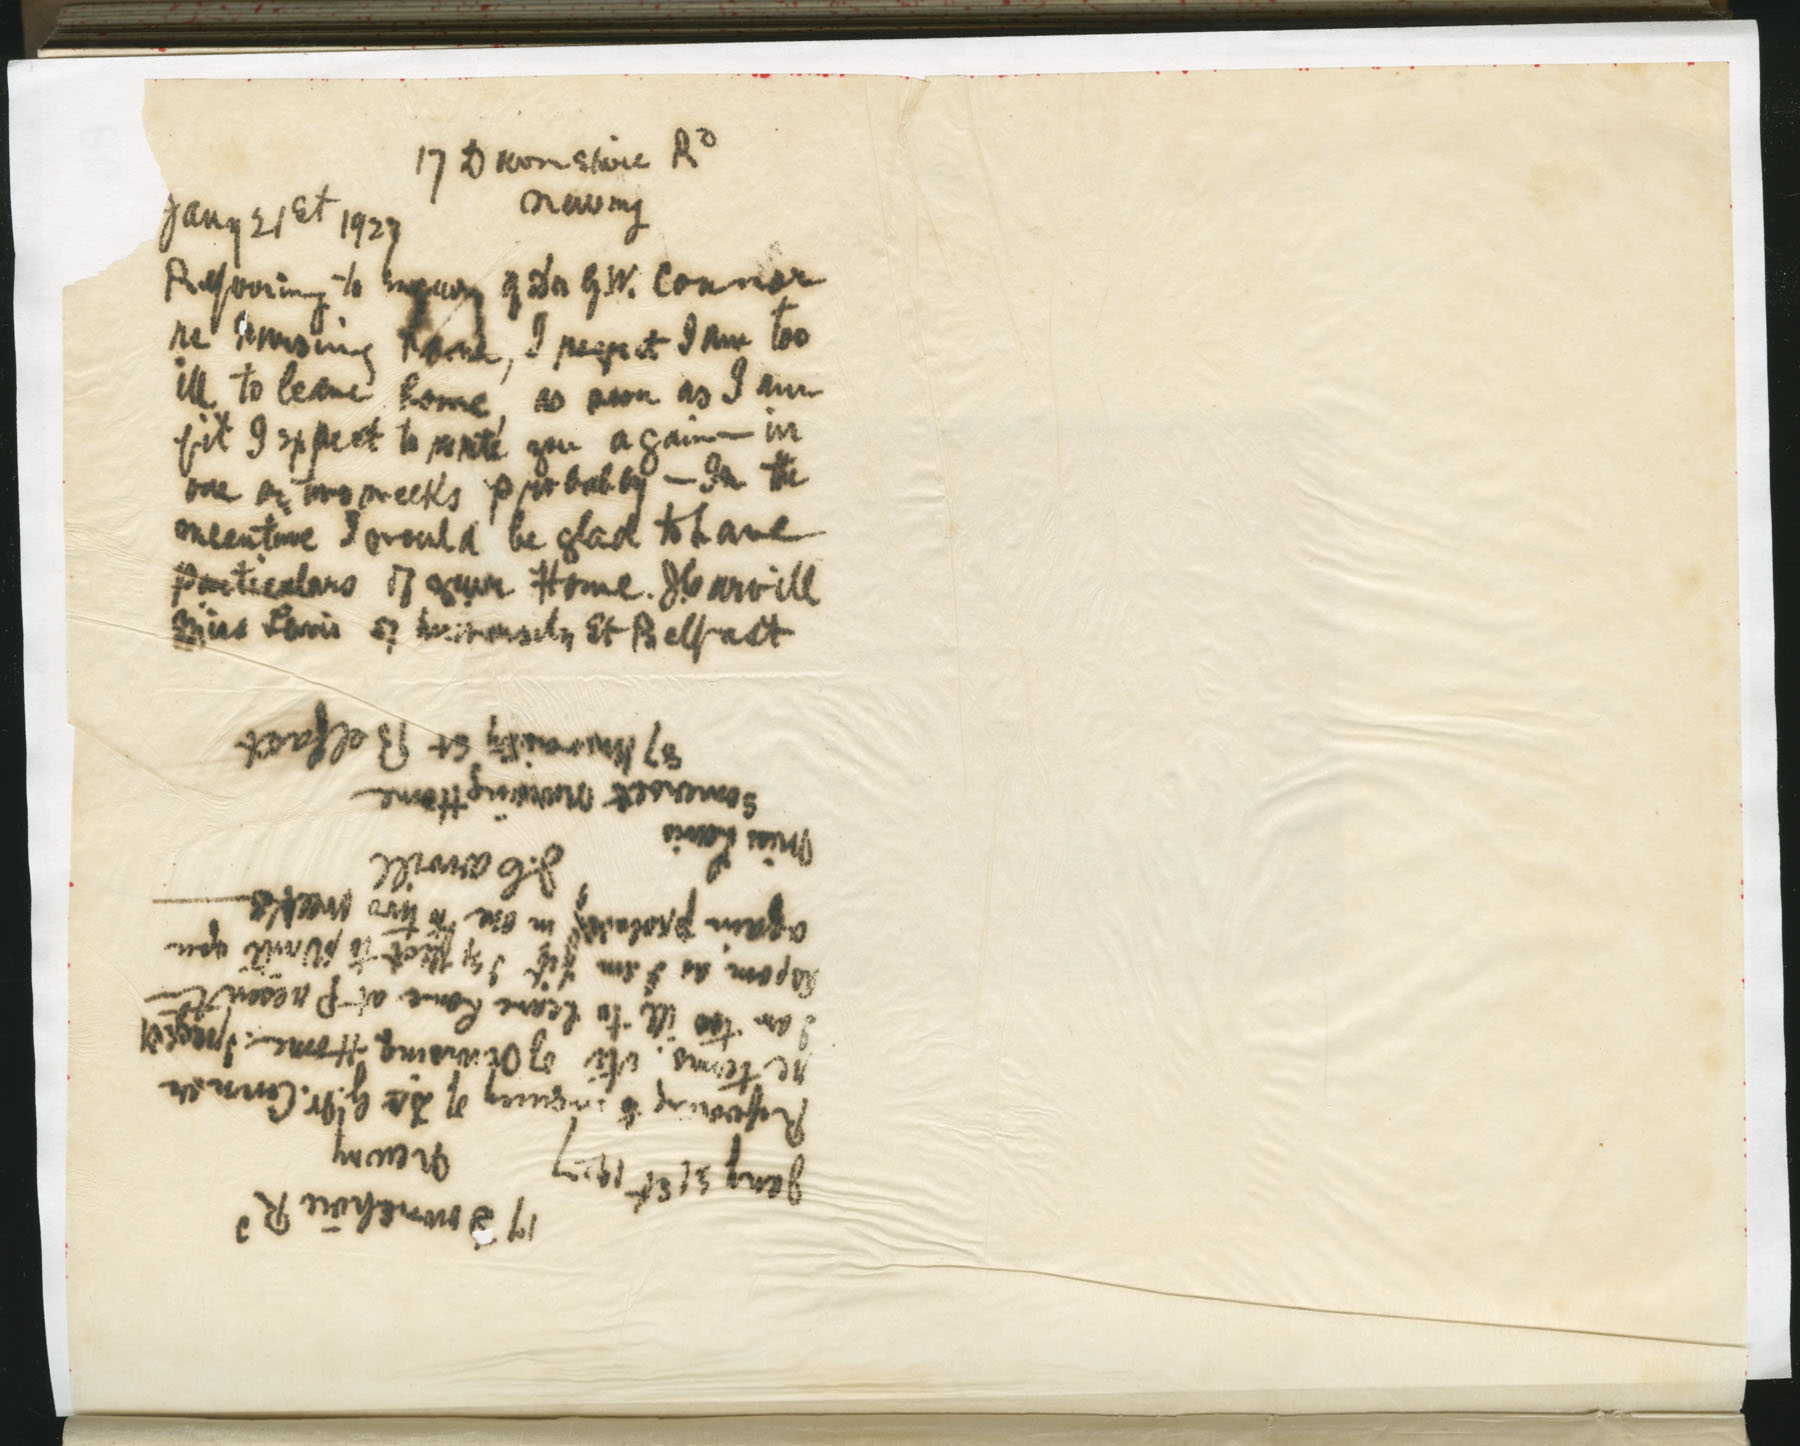 17 Downshire Rd
Newry
Jany 21st 1927
Referring to inquiry of Dr G.W. Connor
re Nursing Home, I regret I am too
ill to leave home, as soon as I am
fit I expect to write you again — in
one or two weeks probably — In the
meantime I would be glad to have
particulars of your Home. J Carvill
Miss Lewis 27 University St Belfast
17 Downshire Rd
Newry
Jany 21st 1927
Referring to inquiry of Dr G.W. Connor
re terms, etc of Nursing Home. I regret
I am too ill to leave home at present
As soon as I am fit I expect to write you
again probably in one to two weeks
J. Carvill
Miss Lewis
Somerset Nursing Home
27 University St Belfast